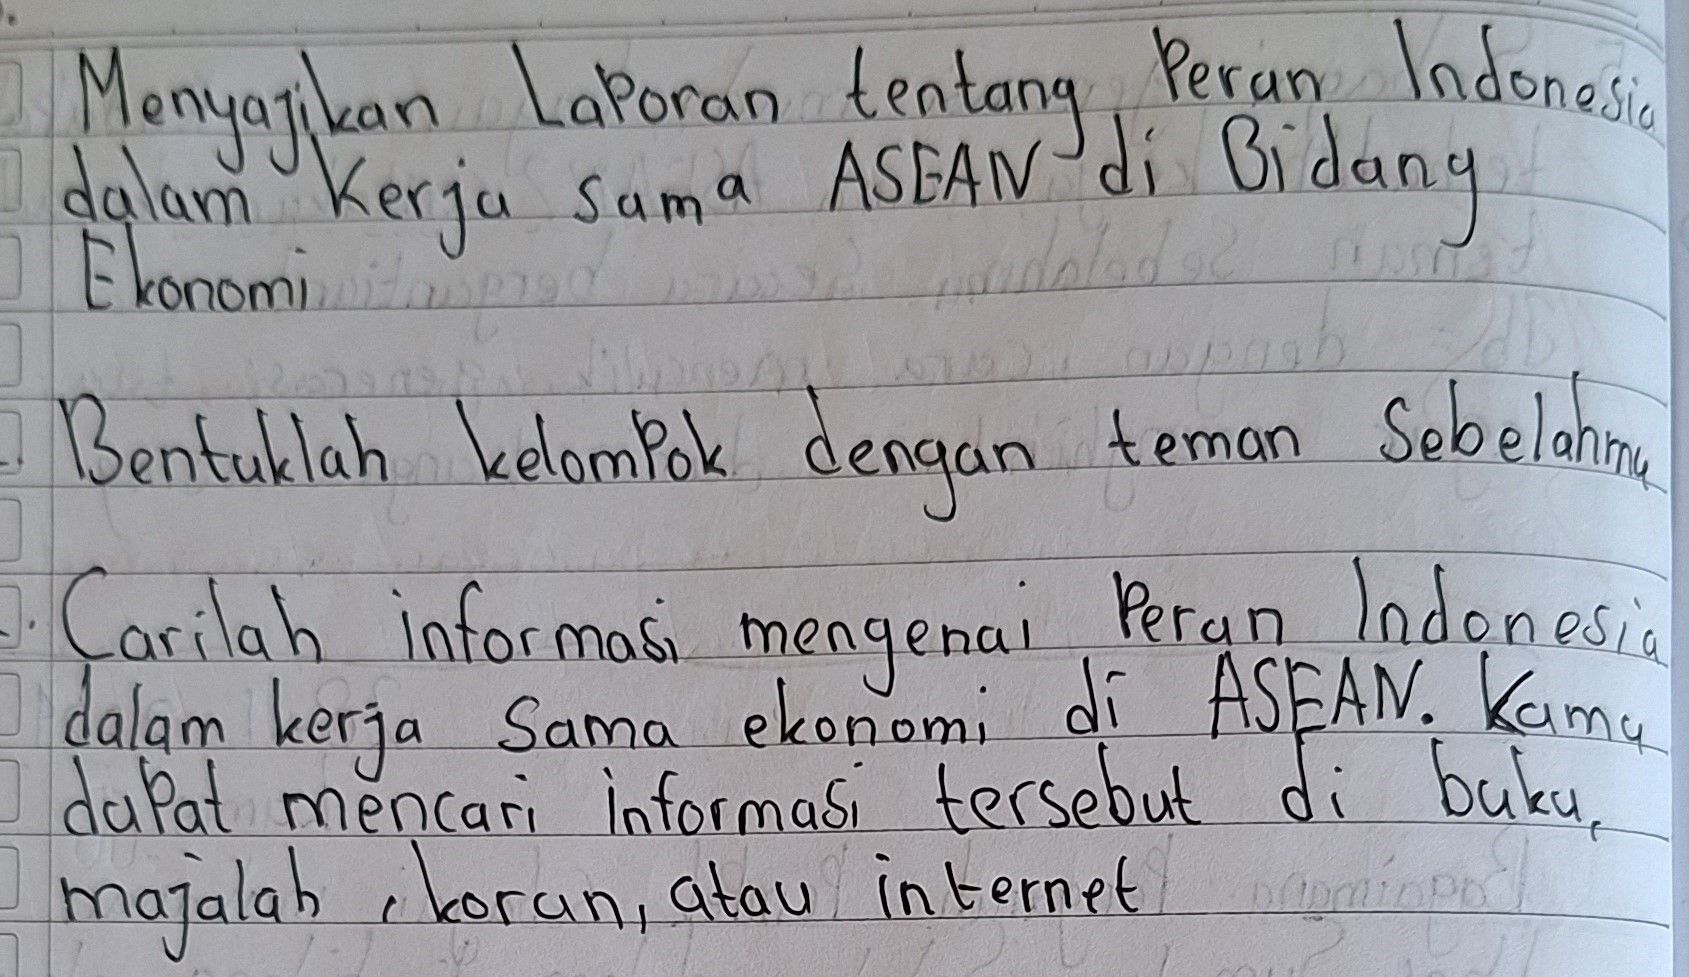 Menyajikan Laporan tentang Peran Indonesia
dalam Kerja sama ASEAN di Bidang
Ekonomi
Bentuklah kelompok dengan teman Sebelahmu
Carilah informasi mengenai Peran Indonesia
dalam kerja Sama ekonomi di ASEAN. Kamu
dapat mencari informasi tersebut di buku,
majalah, koran, atau internet